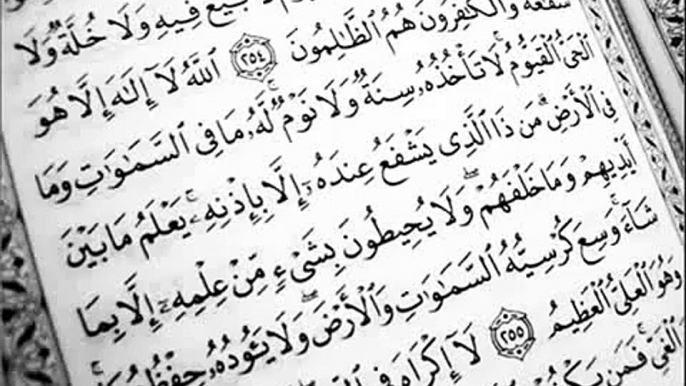 بَيْعٌ فِيهِ وَلَا خُلَّةٌ وَلَا
شَفَٰعَةٌ وَٱلْكَٰفِرُونَ هُمُ ٱلظَّٰلِمُونَ ٢٥٤ ٱللَّهُ لَآ إِلَٰهَ إِلَّا هُوَ
ٱلْحَىُّ ٱلْقَيُّومُ ۚ لَا تَأْخُذُهُۥ سِنَةٌ وَلَا نَوْمٌ ۚ لَّهُۥ مَا فِى ٱلسَّمَٰوَٰتِ وَمَا
فِى ٱلْأَرْضِ ۗ مَن ذَا ٱلَّذِى يَشْفَعُ عِندَهُۥٓ إِلَّا بِإِذْنِهِۦ ۚ يَعْلَمُ مَا بَيْنَ
أَيْدِيهِمْ وَمَا خَلْفَهُمْ ۖ وَلَا يُحِيطُونَ بِشَىْءٍ مِّنْ عِلْمِهِۦٓ إِلَّا بِمَا
شَآءَ ۚ وَسِعَ كُرْسِيُّهُ ٱلسَّمَٰوَٰتِ وَٱلْأَرْضَ ۖ وَلَا يَـُٔودُهُۥ حِفْظُهُمَا ۚ
وَهُوَ ٱلْعَلِىُّ ٱلْعَظِيمُ ٢٥٥ لَآ إِكْرَاهَ فِى
ٱلْغَىِّ ۚ فَمَن يَكْفُرْ